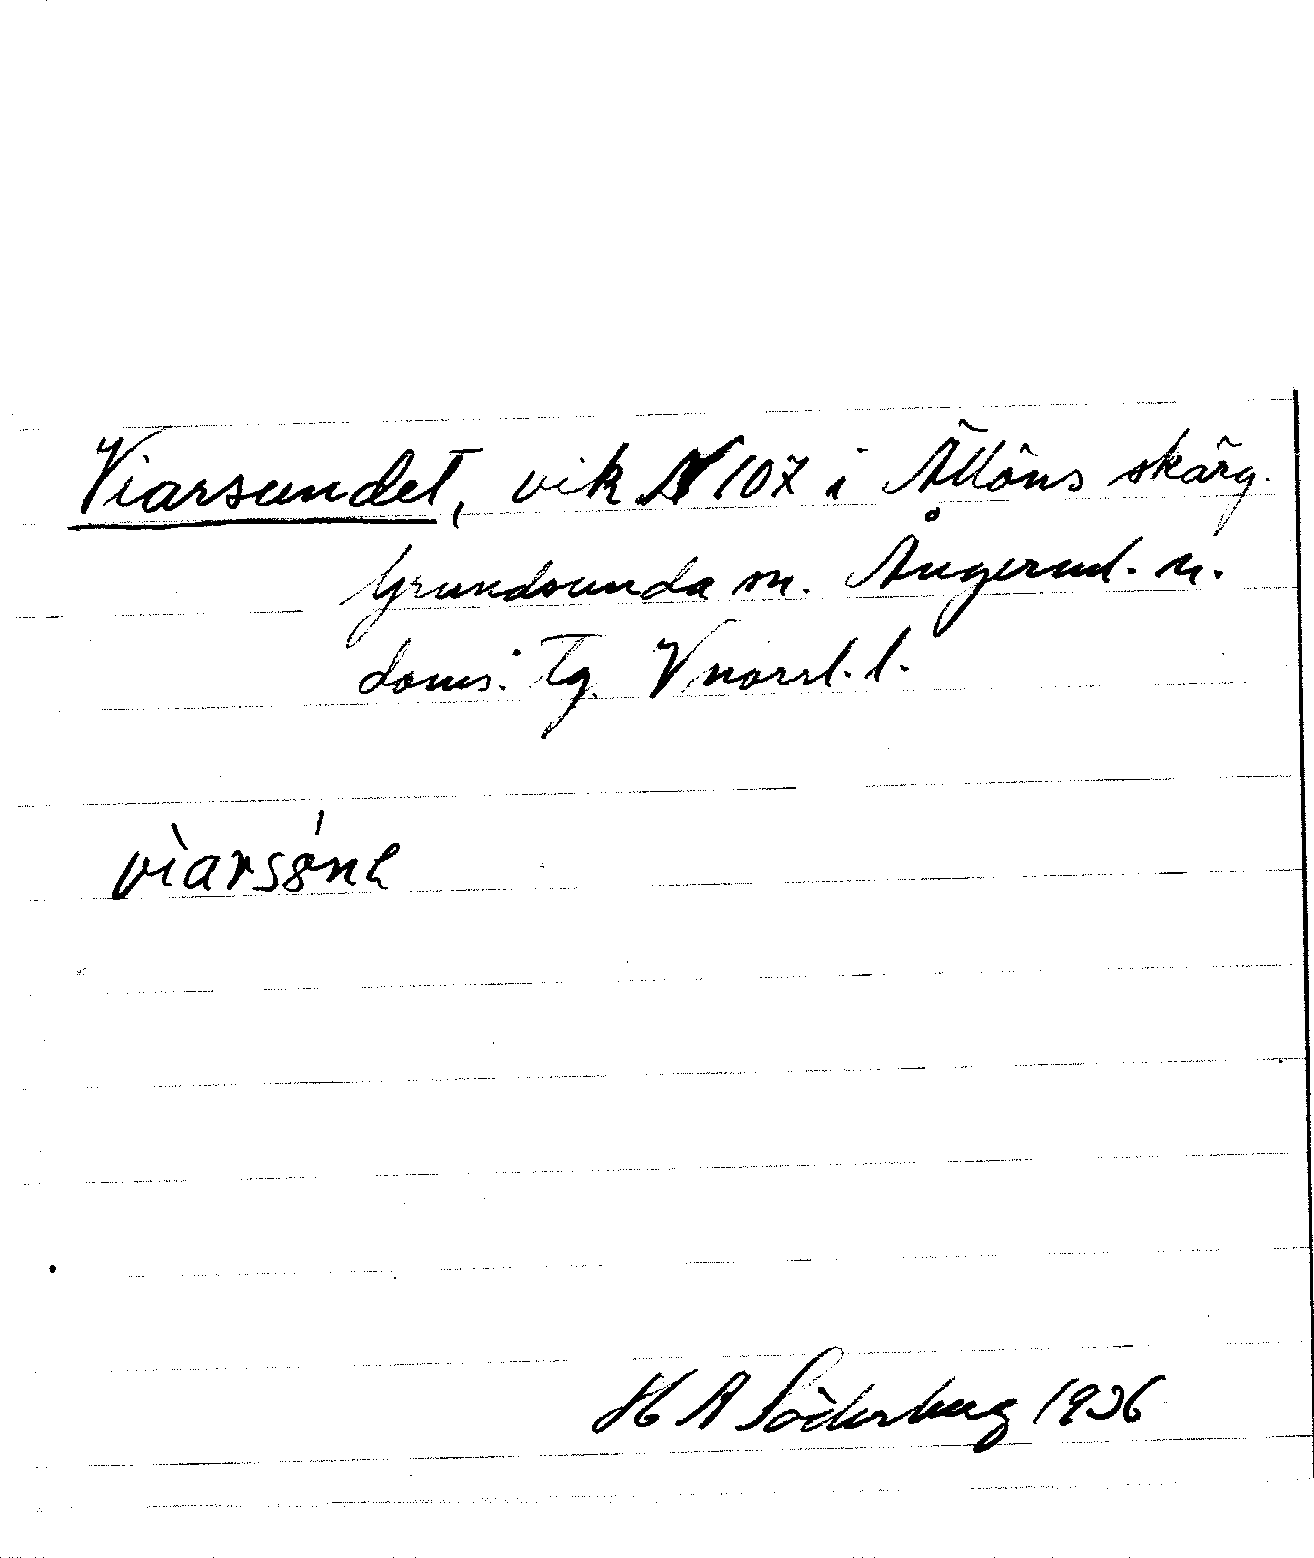 Viarsundet, vik N 107 i Ällöns skärg.
Grundsunda sn. Ångerml. n.
doms. Tg. Vnorrl. l.
vìarsón
H A Söderberg 1936